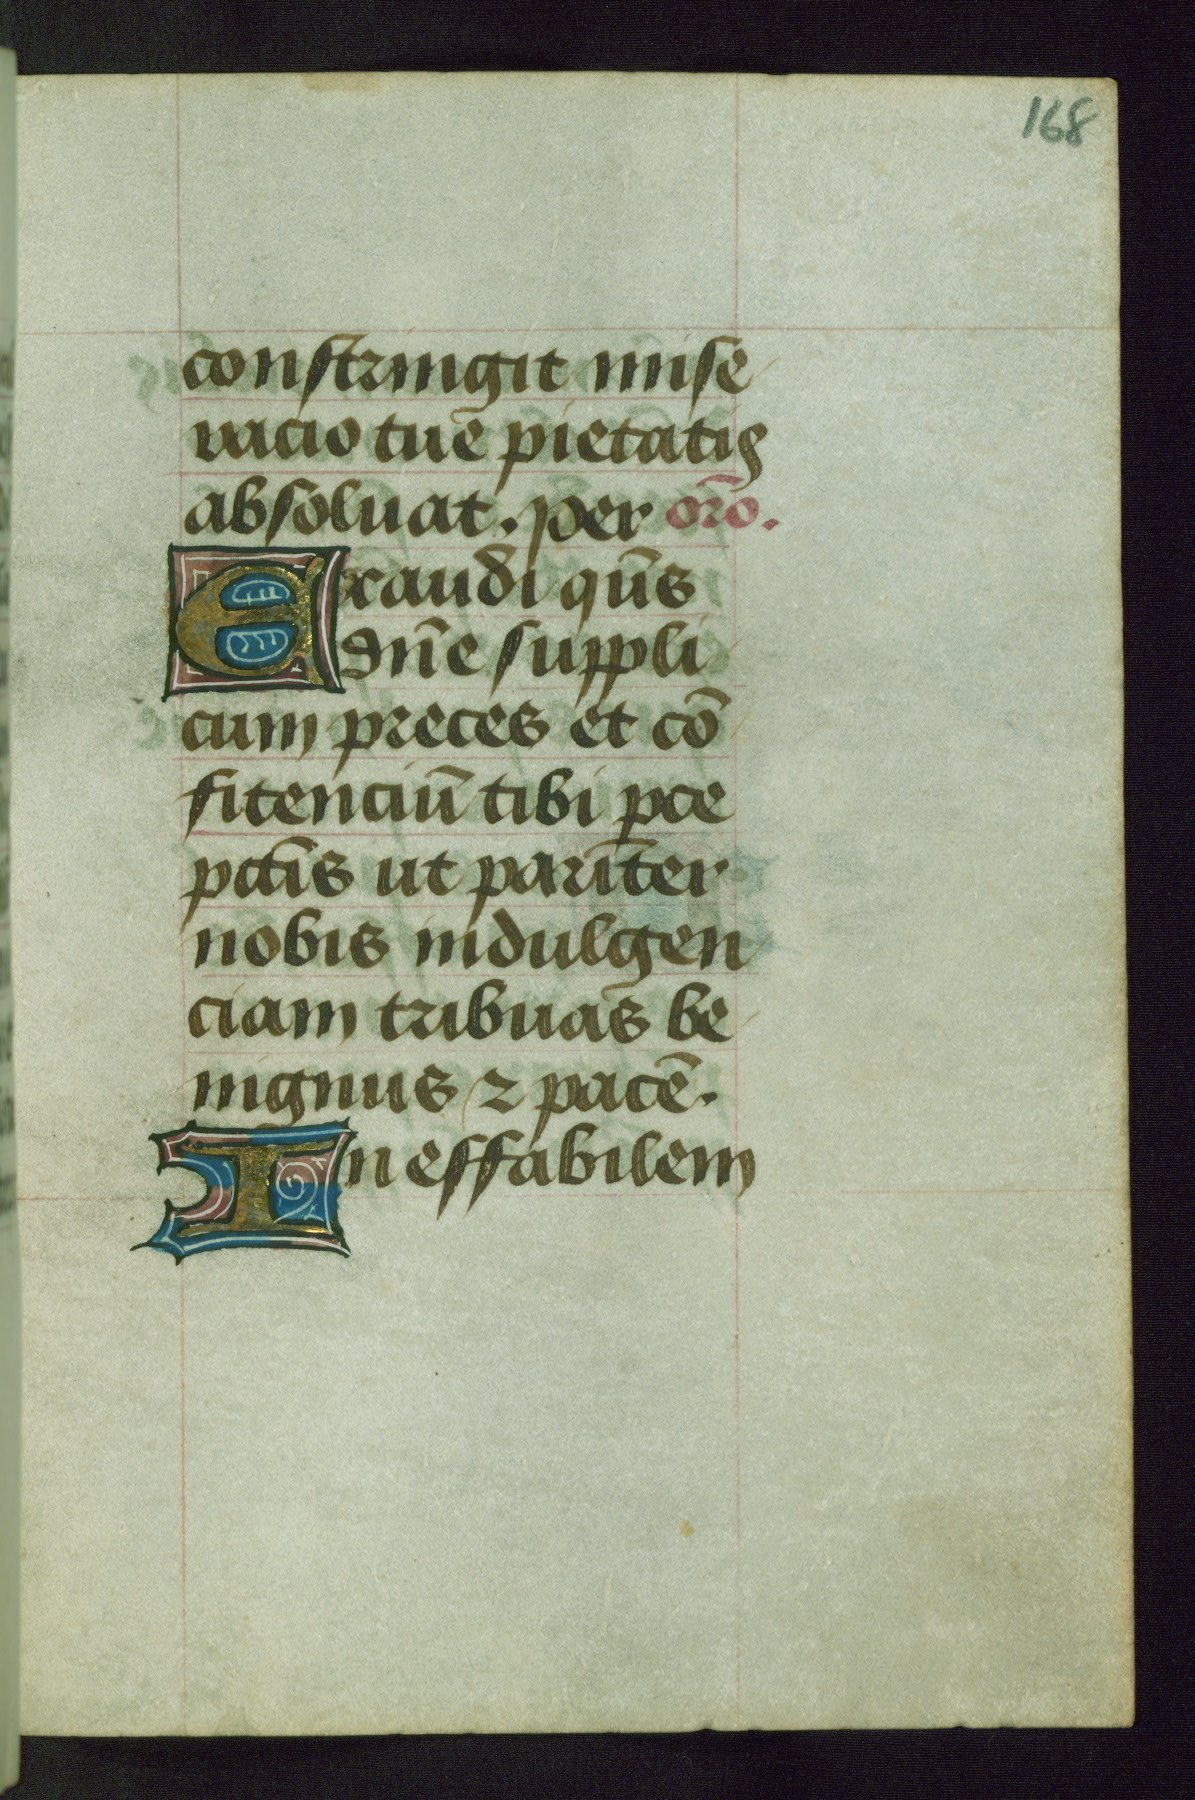 168
constringit mise
racio tue pietatis
absoluat. per oro̅.
Exaudi qu̅s
dn̅e suppli
cum preces et co̅
fitenciu̅ tibi pce
pcti̅s ut pari̅ter
nobis indulgen
ciam tribuas be
nignus ⁊ pace̅.
Ineffabilem